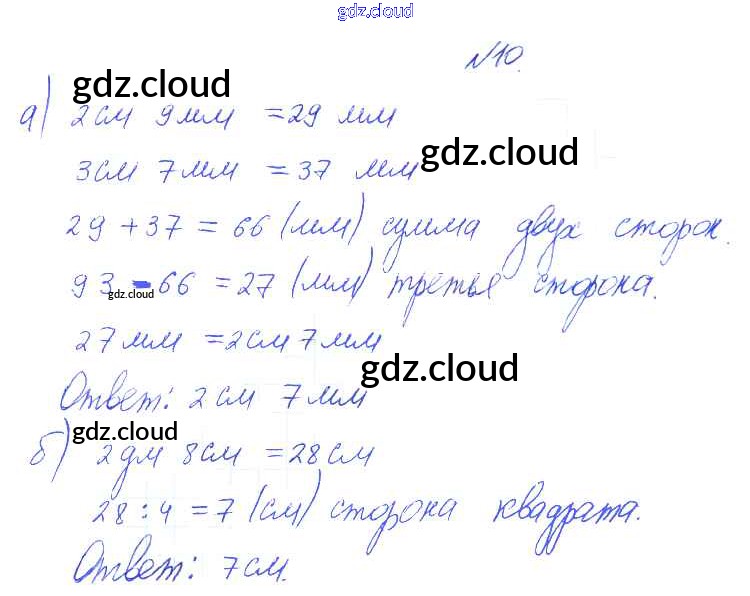 gdz.cloud
№10.
gdz.cloud
а) 2см 9мм = 29 мм
gdz.cloud
3см 7мм = 37 мм
29 + 37 = 66 (мм) сумма двух сторон.
93 - 66 = 27 (мм) третья сторона.
gdz.cloud
27мм = 2см 7мм
gdz.cloud
Ответ: 2см 7мм
gdz.cloud
б) 2дм 8см = 28см
28 : 4 = 7 (см) сторона квадрата.
Ответ: 7см.